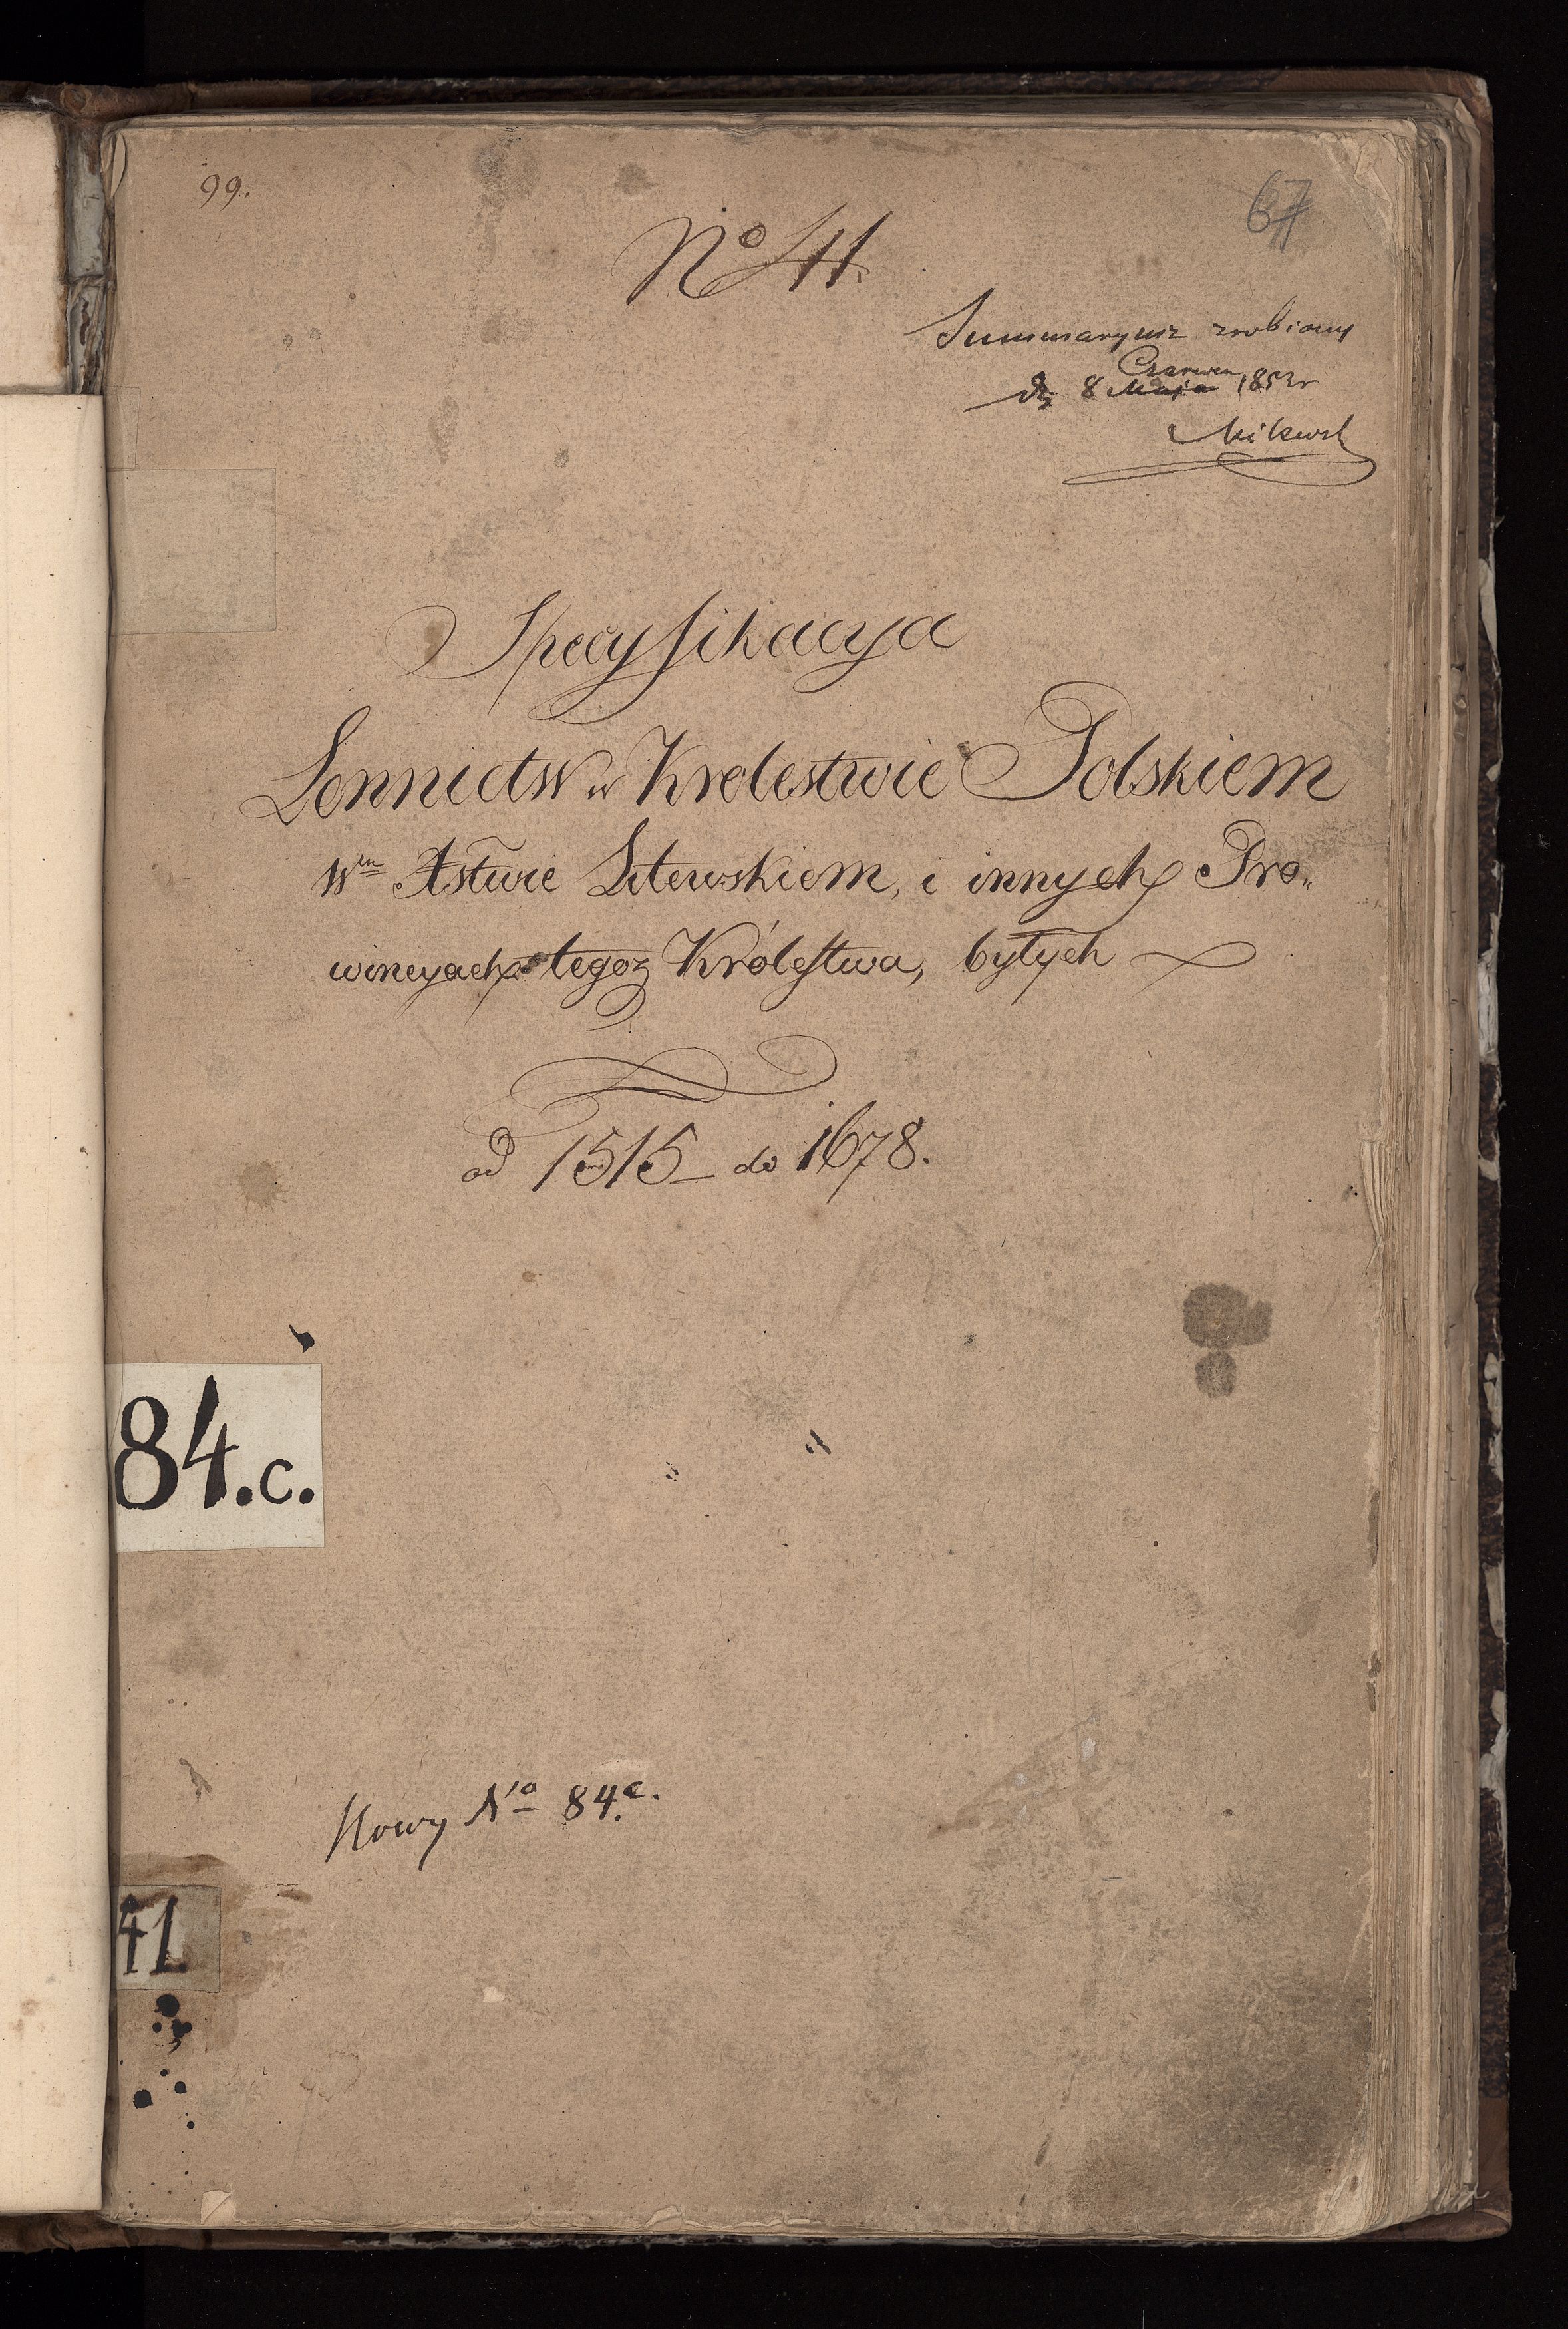 99.
67
No 41.
Summaryusz zrobiony
Czerwca
d. 8 Maja 1852 r
Milewski
Specyfikacya
Lennictw w Krolestwie Polskiem
Wm Xstwie Litewskiem, i innych Pro„
wincyach tegoż Królestwa, bytych
od 1515 – do 1678.
84.c.
Nowy No 84.c.
41